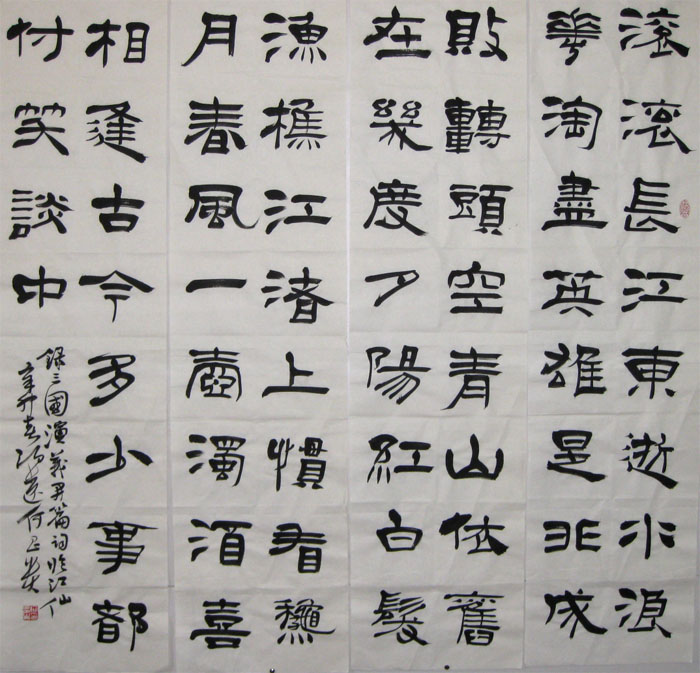 滚滚長江東逝水浪
華淘盡英雄是非成
敗轉頭空青山依舊
在幾度夕陽紅白髮
漁樵江渚上慣看龝
月春風一壺濁酒喜
相逢古今多少事都
付笑談中
録三國演義開篇詞臨江仙
辛卯春